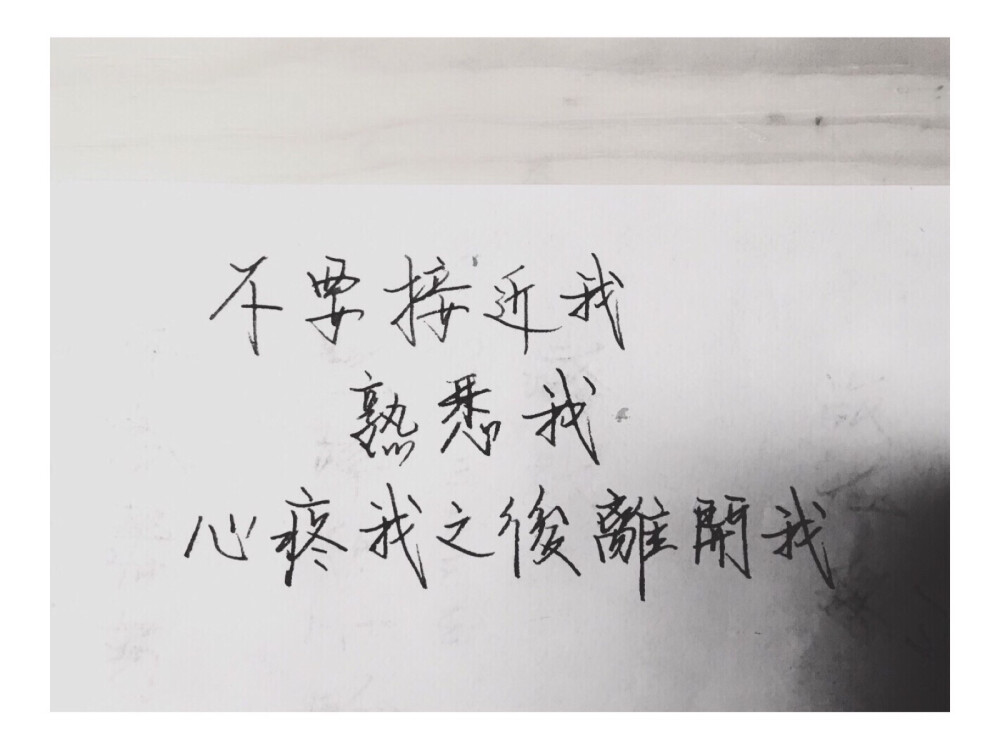 不要接近我
熟悉我
心疼我之後離開我